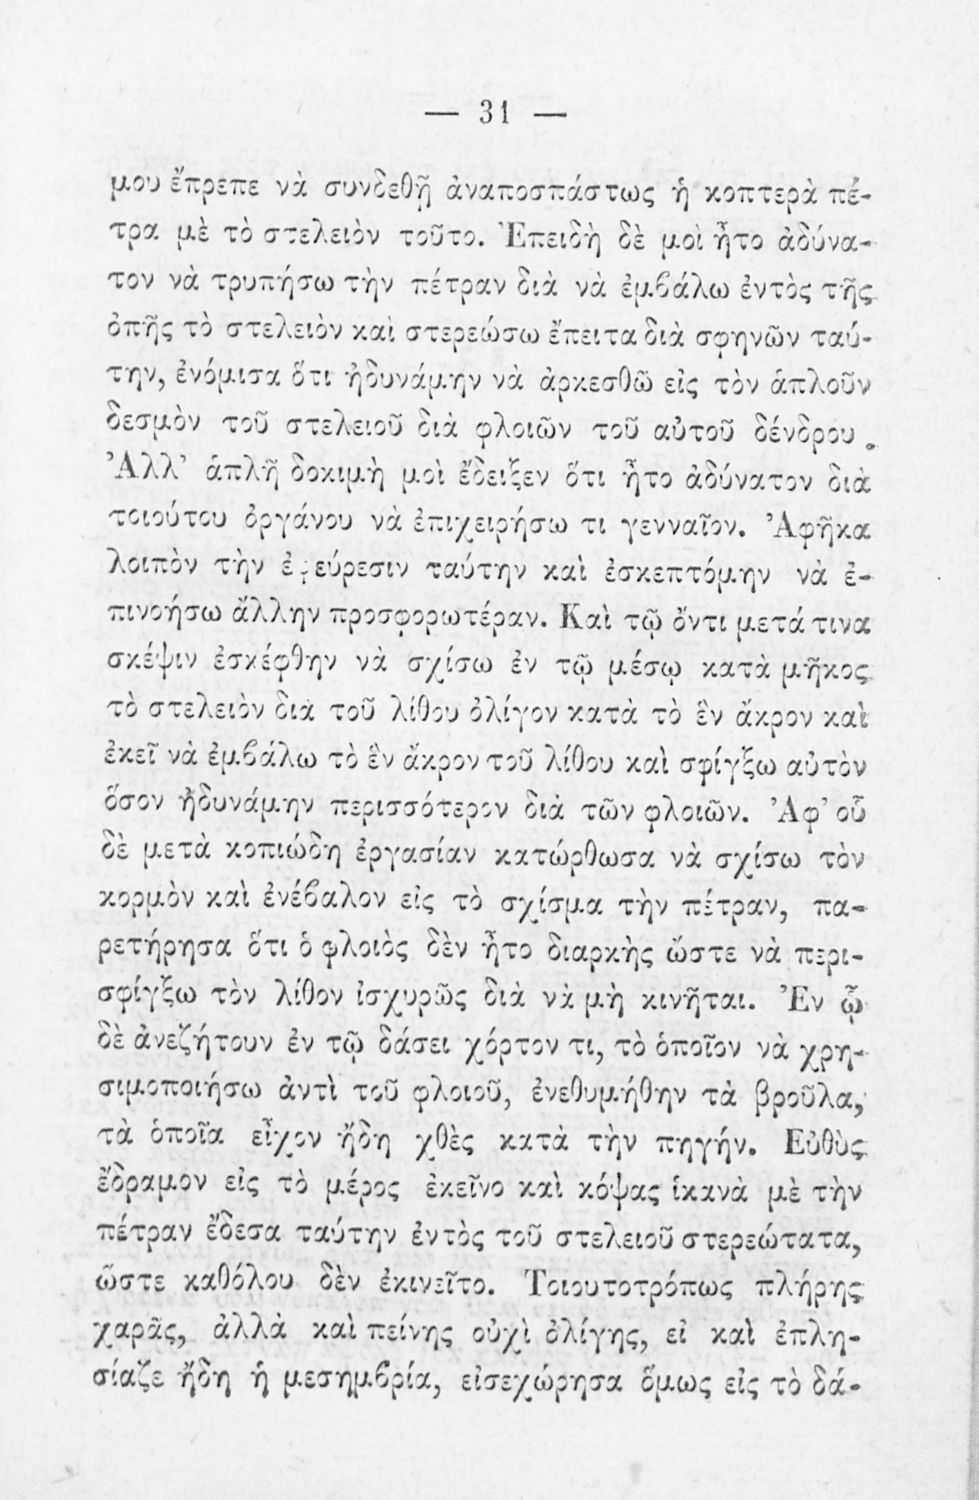 — 31 —
μου ἔπρεπε νὰ συνδεθῇ ἀναποσπάστως ἡ κοπτερὰ πέ-
τρα μὲ τὸ στελειὸν τοῦτο. Ἐπειδὴ δὲ μοὶ ἦτο ἀδύνα-
τον νὰ τρυπήσω τὴν πέτραν διὰ νὰ ἐμβάλω ἐντὸς τῆς
ὀπῆς τὸ στελειὸν καὶ στερεώσω ἔπειτα διὰ σφηνῶν ταύ-
την, ἐνόμισα ὅτι ἠδυνάμην νὰ ἀρκεσθῶ εἰς τὸν ἁπλοῦν
δεσμὸν τοῦ στελειοῦ διὰ φλοιῶν τοῦ αὐτοῦ δένδρου.
Ἀλλ’ ἁπλῆ δοκιμὴ μοὶ ἔδειξεν ὅτι ἦτο ἀδύνατον διὰ
τοιούτου ὀργάνου νὰ ἐπιχειρήσω τι γενναῖον. Ἀφῆκα
λοιπὸν τὴν ἐφεύρεσιν ταύτην καὶ ἐσκεπτόμην νὰ ἐ-
πινοήσω ἄλλην προσφορωτέραν. Καὶ τῷ ὄντι μετά τινα
σκέψιν ἐσκέφθην νὰ σχίσω ἐν τῷ μέσῳ κατὰ μῆκος
τὸ στελειὸν διὰ τοῦ λίθου ὀλίγον κατὰ τὸ ἓν ἄκρον καὶ
ἐκεῖ νὰ ἐμβάλω τὸ ἓν ἄκρον τοῦ λίθου καὶ σφίγξω αὐτὸν
ὅσον ἠδυνάμην περισσότερον διὰ τῶν φλοιῶν. Ἀφ’ οὗ
δὲ μετὰ κοπιώδη ἐργασίαν κατώρθωσα νὰ σχίσω τὸν
κορμὸν καὶ ἐνέβαλον εἰς τὸ σχίσμα τὴν πέτραν, πα-
ρετήρησα ὅτι ὁ φλοιὸς δὲν ἦτο διαρκὴς ὥστε νὰ περι-
σφίγξω τὸν λίθον ἰσχυρῶς διὰ νὰ μὴ κινῆται. Ἐν ᾧ
δὲ ἀνεζήτουν ἐν τῷ δάσει χόρτον τι, τὸ ὁποῖον νὰ χρη-
σιμοποιήσω ἀντὶ τοῦ φλοιοῦ, ἐνεθυμήθην τὰ βροῦλα,
τὰ ὁποῖα εἶχον ἤδη χθὲς κατὰ τὴν πηγήν. Εὐθὺς
ἔδραμον εἰς τὸ μέρος ἐκεῖνο καὶ κόψας ἱκανὰ μὲ τὴν
πέτραν ἔδεσα ταύτην ἐντὸς τοῦ στελειοῦ στερεώτατα,
ὥστε καθόλου δὲν ἐκινεῖτο. Τοιουτοτρόπως πλήρης
χαρᾶς, ἀλλὰ καὶ πείνης οὐχὶ ὀλίγης, εἰ καὶ ἐπλη-
σίαζε ἤδη ἡ μεσημβρία, εἰσεχώρησα ὅμως εἰς τὸ δά-